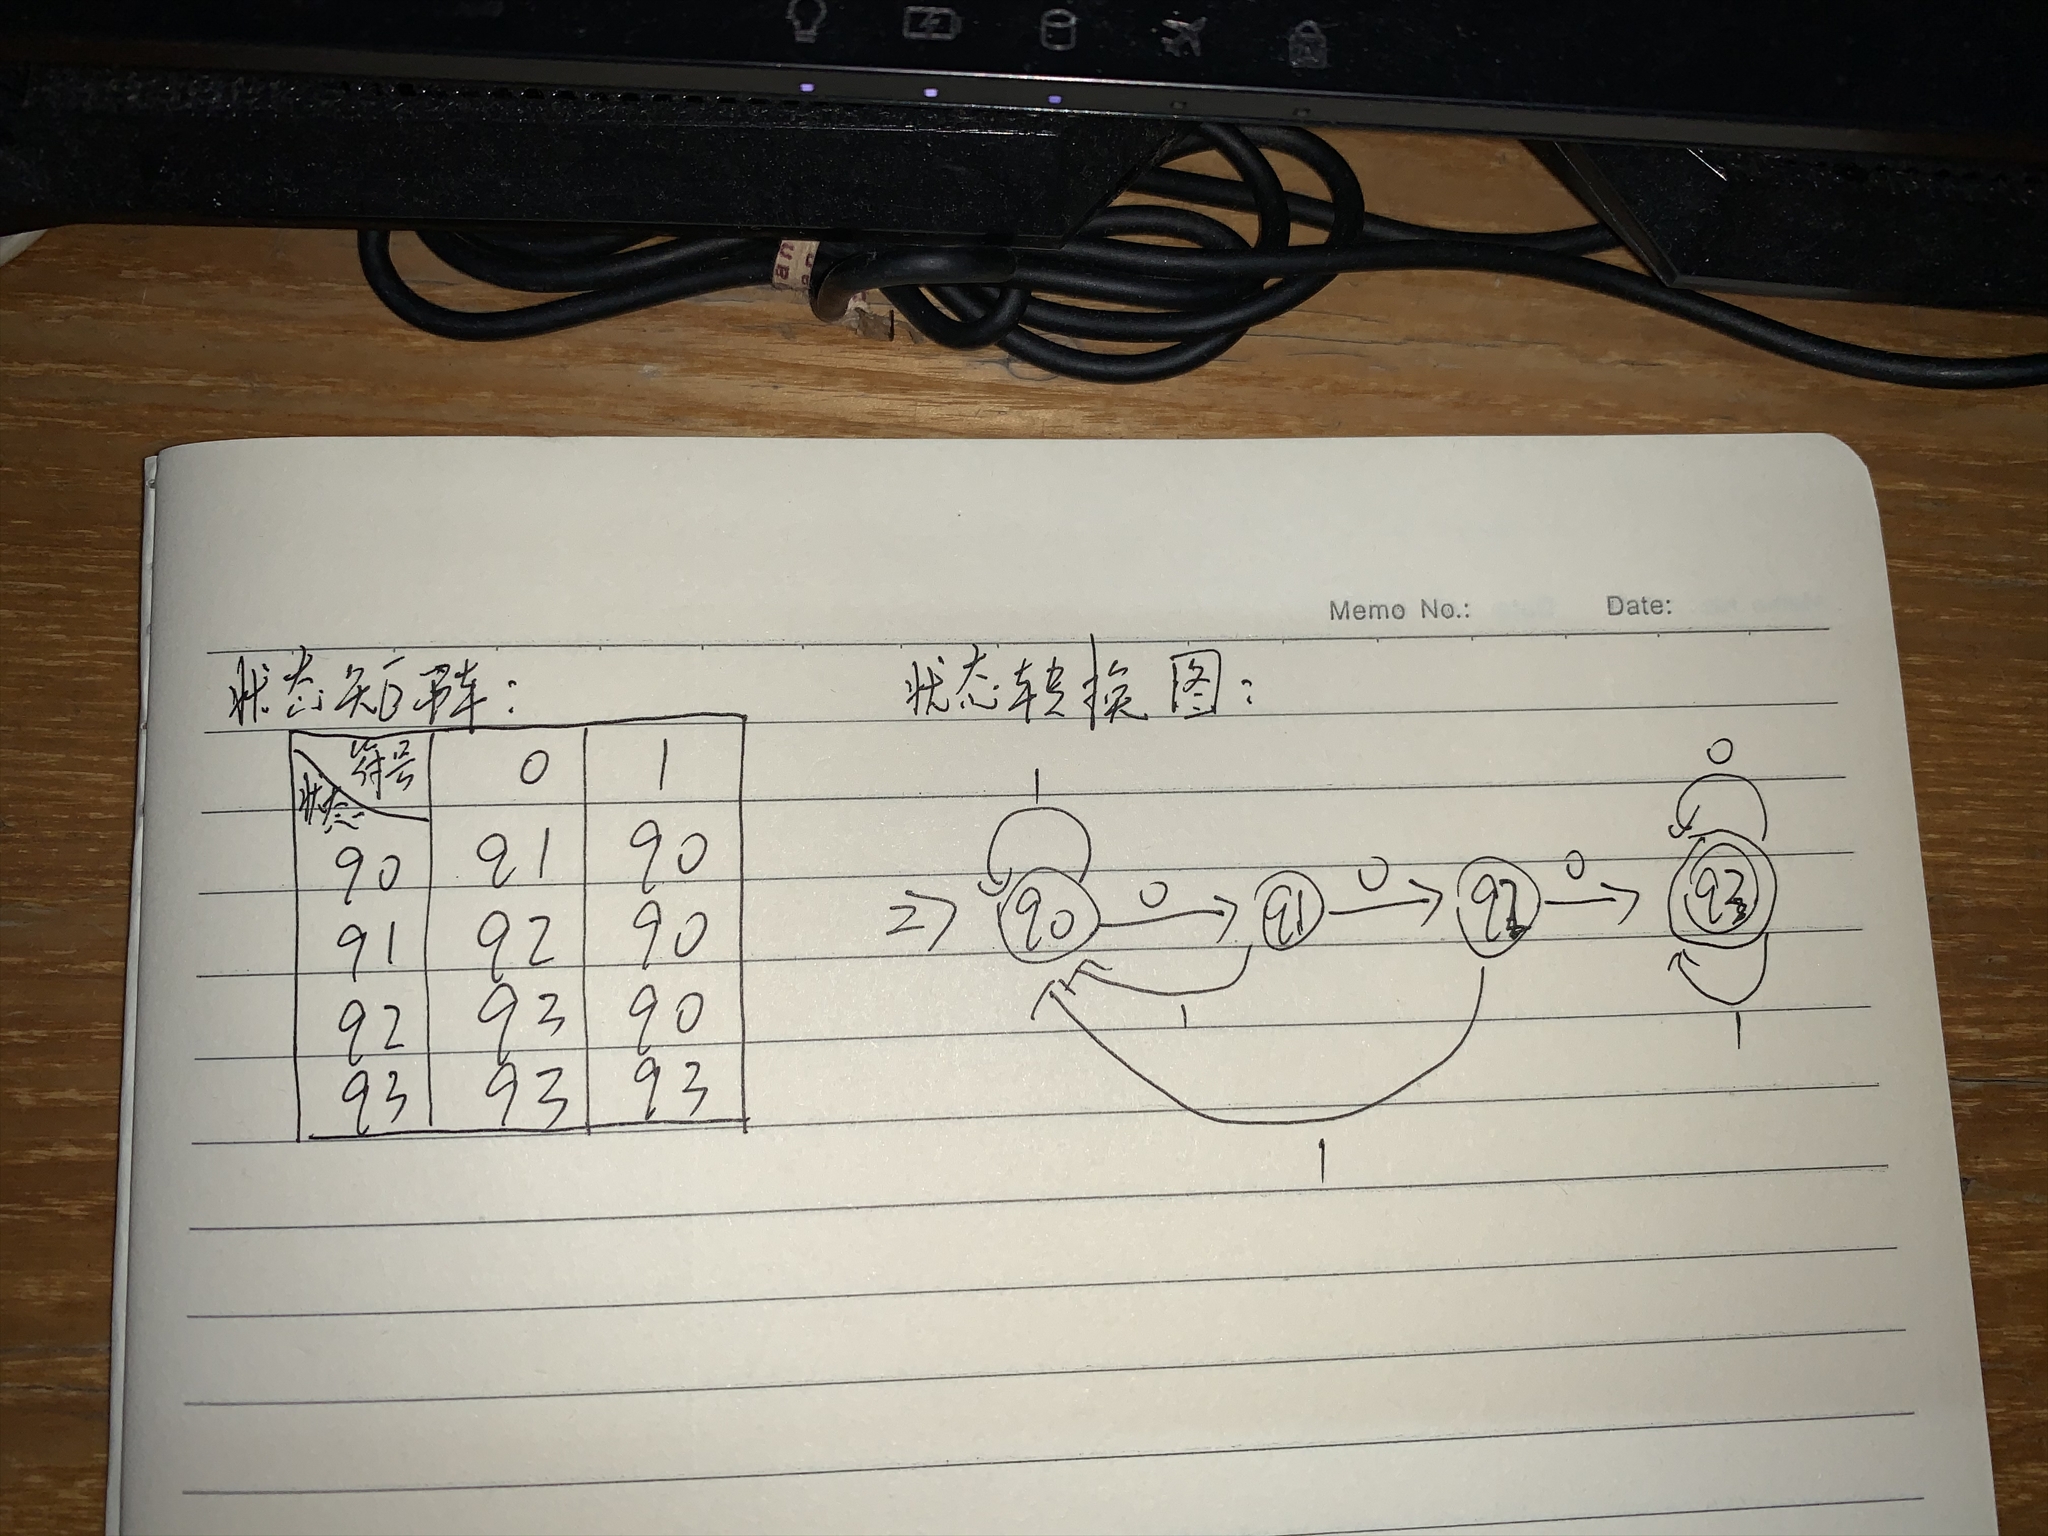 an
an
Memo No.: Date:
状态矩阵: 状态转换图:
符号 0 1
状态
q0 q1 q0
q1 q2 q0
q2 q3 q0
q3 q3 q3
1 0
=> q0 0 q1 0 q2 0 q3
1 1
1